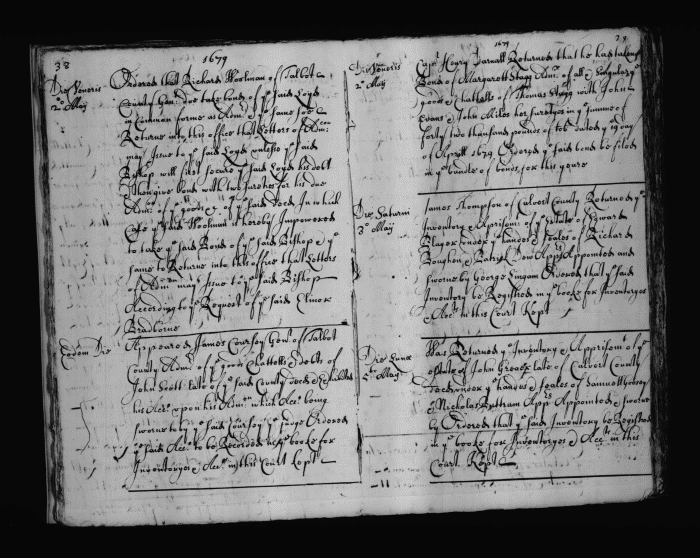 38
1679
Die Veneris
2º May
Ordered that Richard Woolman of Talbot
County Gent: doe take bond of yᵉ said Loyd
in Common forme as Adm: & yᵉ same to
Returne into this office that Letters of Adm:
may Issue to yᵉ said Loyd unlesse yᵉ said
Bishop will first secure yᵉ said Loyd his debt
then give bond with two sureties for his due
Adm: of yᵉ goods &c of yᵉ said decd In which
Case yᵉ said Woolman is hereby Impowered
to take yᵉ said Bond of yᵉ said Bishop & yᵉ
same to Returne into this office that Letters
of Adm: may Issue to yᵉ said Bishop
According to yᵉ Request of yᵉ said Elinor
Bradborne
Eodem Die
Appeared James Coursey Gent: of Talbot
County Adm: of yᵉ goods Chattells & debts of
John Scott late of yᵉ said County decd & Exhibited
his Acct upon his Adm: which Acct being
sworne to by yᵉ said Coursey yᵉ Judge Ordered
yᵉ said Acct to be Recorded in yᵉ booke for
Inventoryes & Acctˢ in this Court Kept
1679
Die Veneris
2º May
Capᵗ Henry Darnall Returned that he has taken
Bond of Margarett Stagg Adm: of all & singular yᵉ
goods & Chattells of Thomas Stagg with John
Evans & John Miles her suretys in yᵉ summe of
forty two thousand pounds of tob: dated yᵉ 19 day
of Aprill 1679. Ordered yᵉ said bond be filed
in yᵉ bundle of bonds for this yeare
Die Saturni
3º May
James Thompson of Calvert County Returned yᵉ
Inventory & Apprisemᵗ of yᵉ Estate of Edward
under yᵉ handes & seales of Richard
& Patrick Apprs Appointed and
sworne by George Lingam Ordered that yᵉ said
Inventory be Registred in yᵉ booke for Inventoryes
& Acctˢ in this Court Kept
Die Lunæ
5º May
Was Returned yᵉ Inventory & Apprisemᵗ of yᵉ
estate of John late of Calvert County
decd under yᵉ handes & seales of Samuel
& Nicholas Apprs Appointed & sworne
by Ordered that yᵉ said Inventory be Registred
in yᵉ booke for Inventoryes & Acctˢ in this
Court Kept